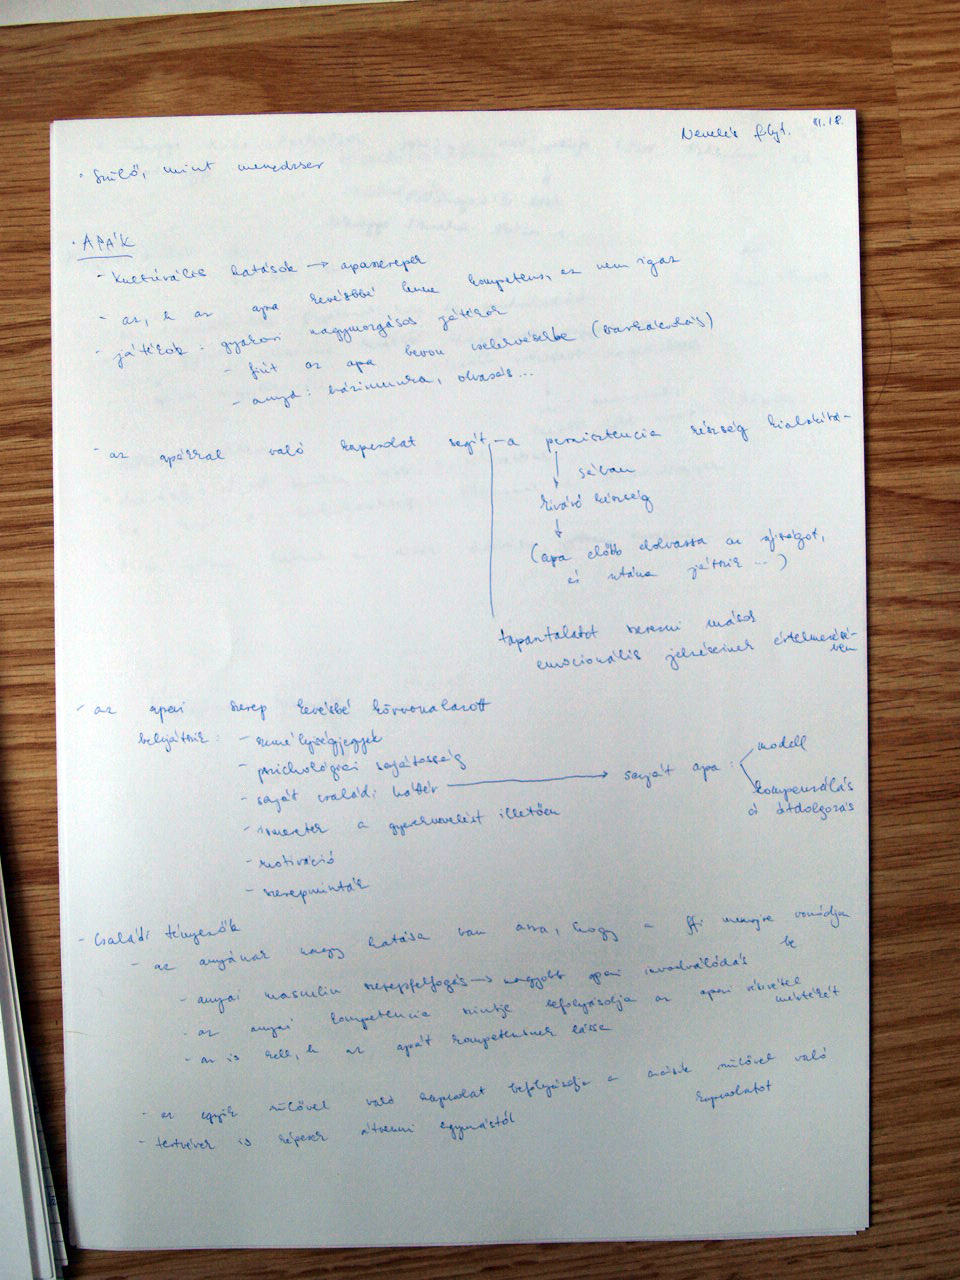 Nevelés folyt. 11.18.
• Szülő, mint menedzser
• APÁK
- kulturális hatások → apaszerepek
- az, h az apa kevésbbé lenne kompetens, ez nem igaz
- játékok - gyakori nagymozgásos játékok
- fiút az apa bevon cselekvésbe (barkácsolás)
- anya: házimunka, olvasás...
- az apákkal való kapcsolat segít - a perzisztencia készség kialakítá-
sában
kiváró készség
(apa előbb elolvassa az újságot,
és utána játszik ...)
tapasztalatot szerezni mások
emocionális jelzéseinek értelmezésé-
ben
- az apai szerep kevésbé körvonalazott
belejátszik: - személyiségjegyek
- pszichológiai sajátosság
- saját családi háttér → saját apa: modell
kompenzálás
és átdolgozás
- ismeretek a gyereknevelést illetően
- motiváció
- szerepminták
- Családi tényezők
- az anyának nagy hatása van arra, hogy a ffi mennyire vonódja
be
- anyai maskulin szerepfelfogás → nagyobb apai involválódás
- az anyai kompetencia szintje befolyásolja az apai részvétel
mértékét
- az is kell, h az apát kompetensnek lássa
- az egyik szülővel való kapcsolat befolyásolja a másik szülővel való
kapcsolatot
- testvérek is képesek átvenni egymástól